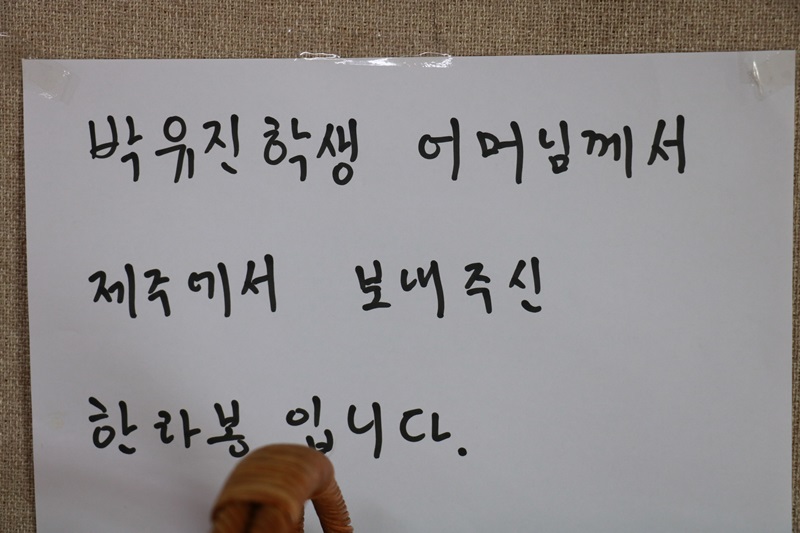 박유진학생 어머님께서
제주에서 보내주신
한라봉 입니다.